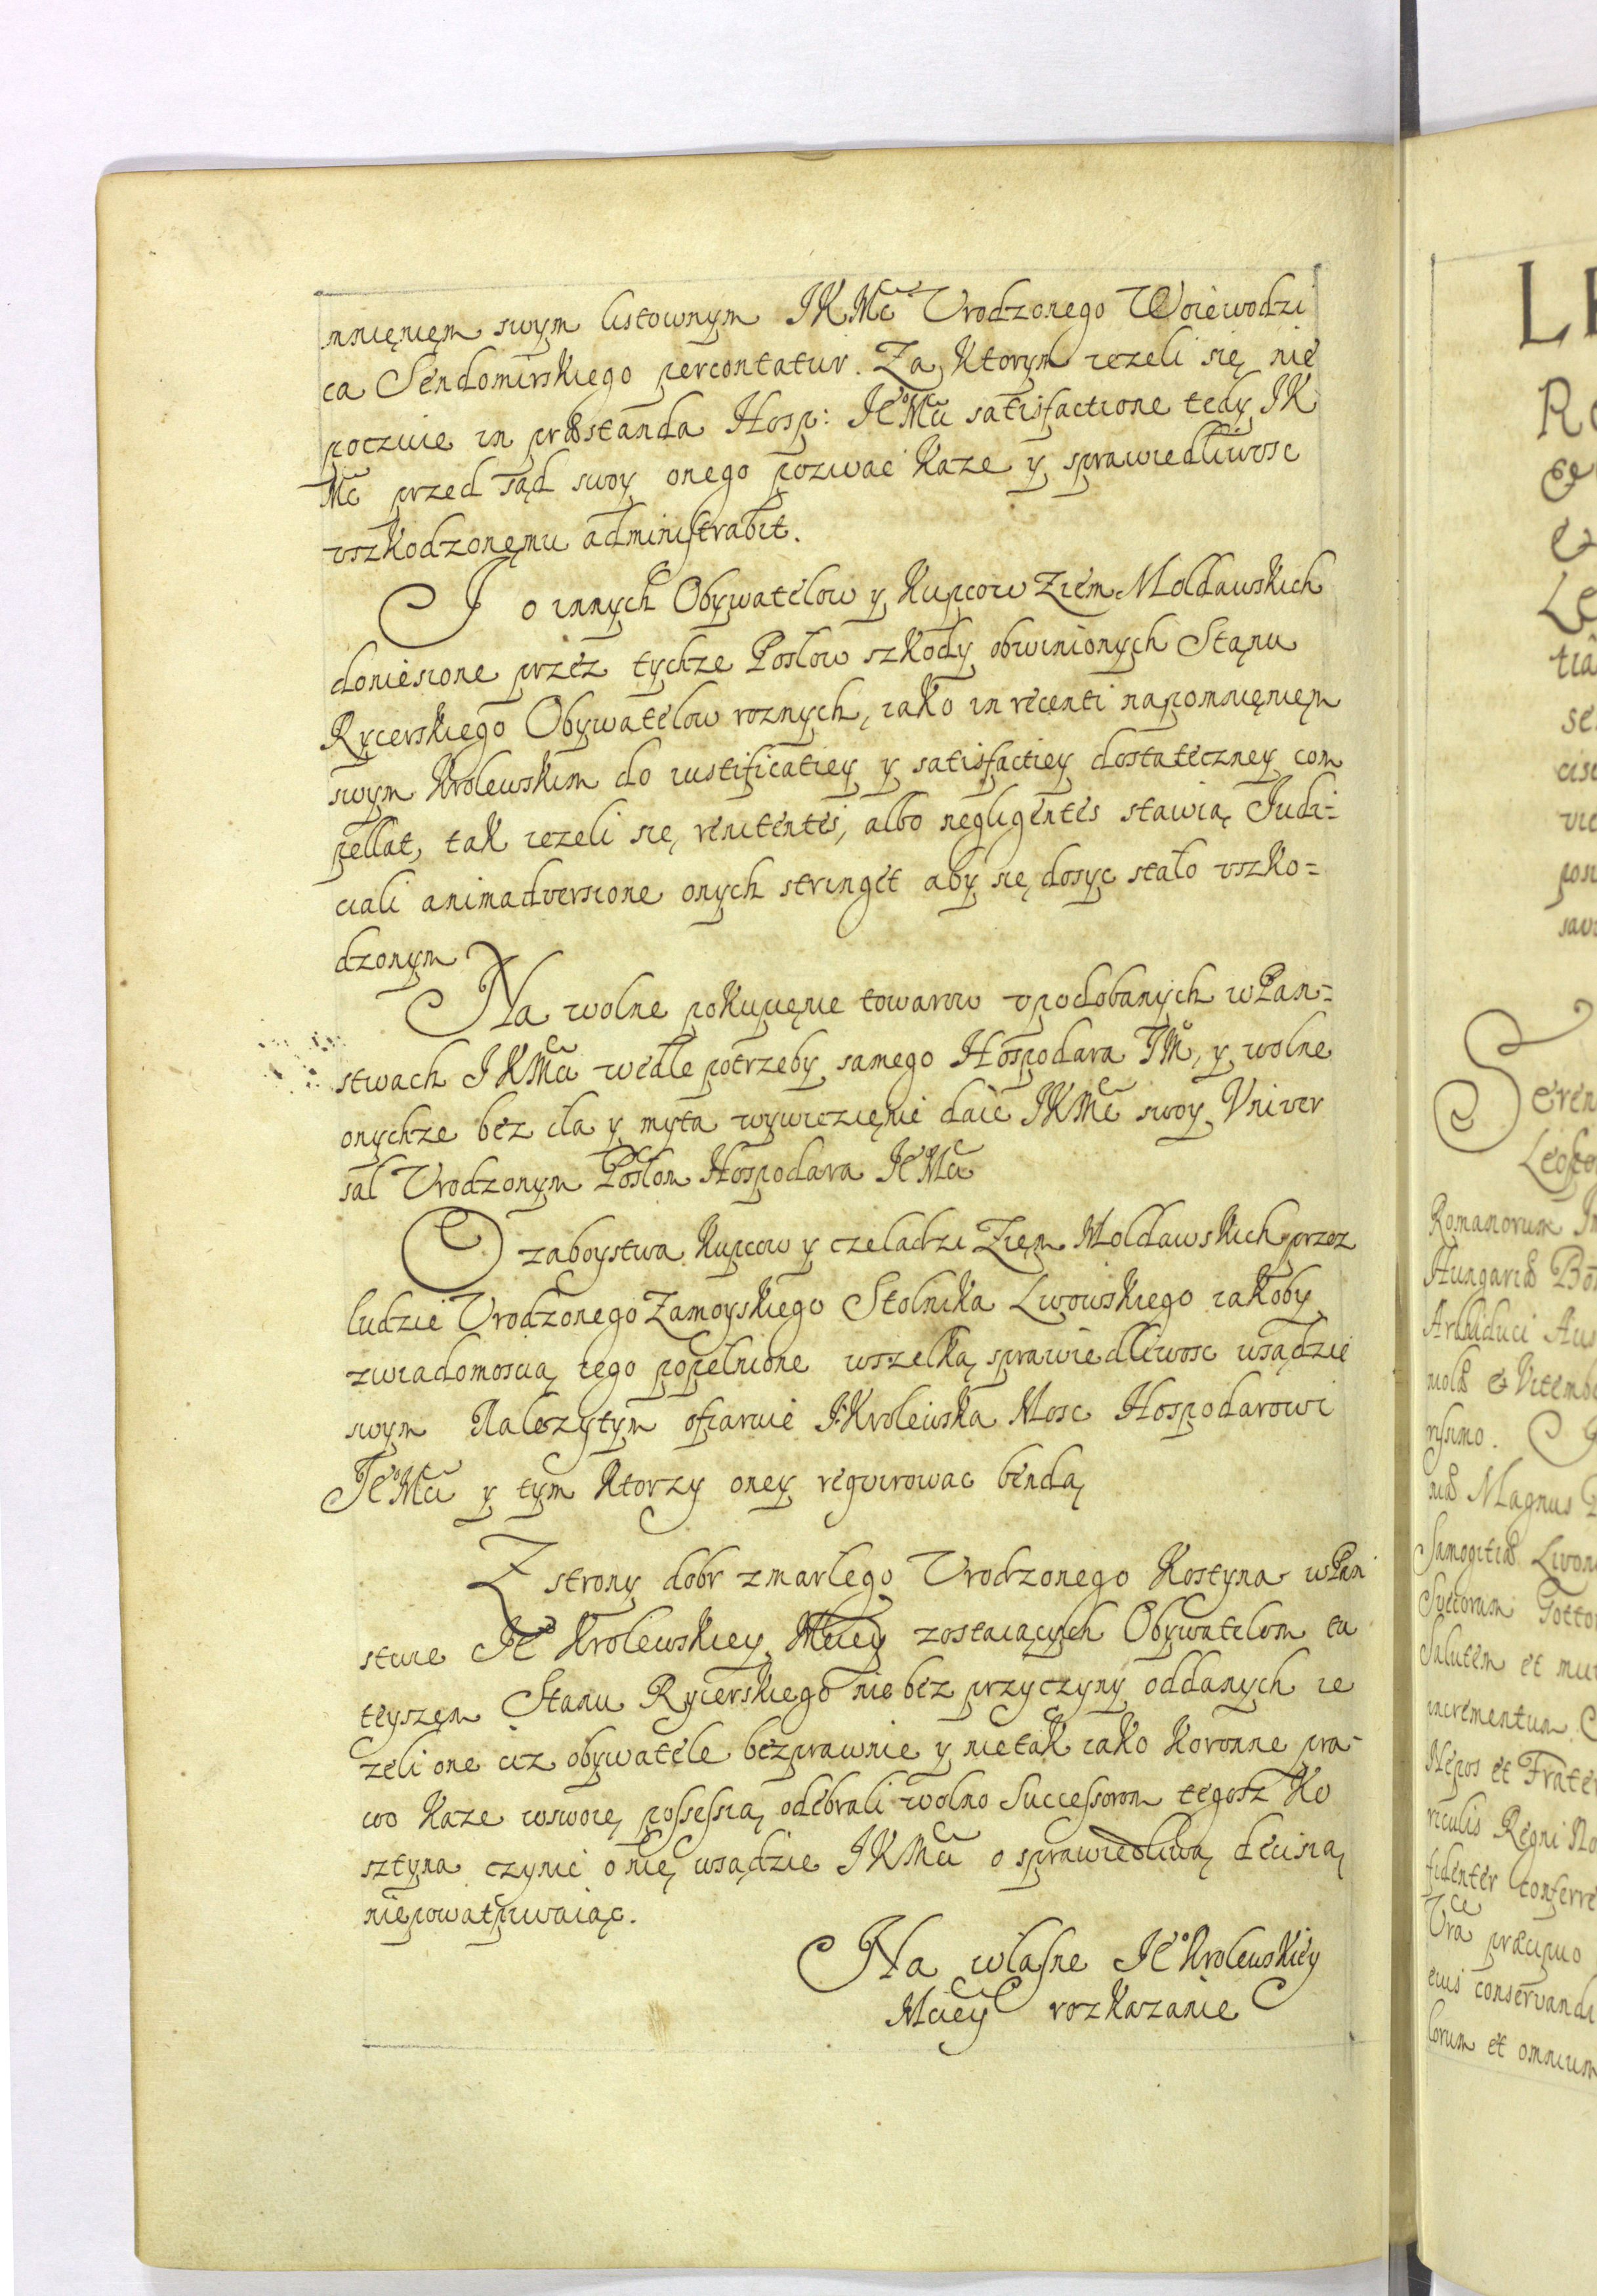 mnięnięm swym listownym JKMci Vrodzonego Woiewodzi
ca Sendomirskiego percontatur. Za ktorym iezeli się nie
poczuie in præstanda Hosp: JeoMci satisfactione tedy JK
Mc przed sąd swoy onego pozwać kaze y sprawiedliwosc
vszkodzonęmu administrabit.
J o innych Obywatelow y kupcow Ziem Moldawskich
doniesione przez tychze Posłow szkody obwinionych Stanu
Rycerskiego Obywatelow roznych, iako in recenti napomnięnięm
swym Krolewskim do iustificatiey y satisfactiey dostateczney com
pellat, tak iezeli się renitentes, albo negligentes stawią Judi=
ciali animadversione onych stringet aby się dosyc stało vszko=
dzonym
Na wolne pokupięnie towarow vpodobanych w Pan=
stwach JKMci wedle potrzeby samego Hospodara JM, y wolne
onychze bez cła y myta wywiezięnie daie JKMc swoy Vniver
sał Vrodzonym Posłom Hospodara JeoMci
O zaboystwa kupcow y czeladzi Ziem Moldawskich przez
ludzie Vrodzonego Zamoyskiego Stolnika Lwowskiego iakoby
zwiadomoscią iego popełnione wszelką sprawiedliwosc wsądzie
swym Nalezytym ofiaruie J. Krolewska Mosc Hospodarowi
JeoMci y tym ktorzy oney reqvirowac bendą
Z strony dobr zmarłego Vrodzonego Kostyna w Pan
stwie Jeo Krolewskiey Mciey zostaiących Obywatelom tu
teyszęm Stanu Rycerskiego nie bez przyczyny oddanych ie
zeli one ciz obywatele bezprawnie y nie tak iako Koronne pra=
wo kaze wswoię possessią odebrali wolno Successorom tegosz Ko
sztyna czynić o nię wsądzie JKMci o sprawiedliwą decisią
niepowątpiwaiąc.
Na własne Jeo Krolewskiey
Mciey rozkazanie
R
Le
tia
se
cis
vic
Seren
Leopo
Romanorum Im
Hungariæ Bo
Archiduci Aus
niolæ & Vitembe
rissimo.
niæ Magnus
Samogitiæ Livon
Svecorum Gotto
Salutem et mu
incrementum
Nepos et Frater
riculis Regni No
fidenter conferre
Vra præcipuo
eius conservanda
lorum et omnium